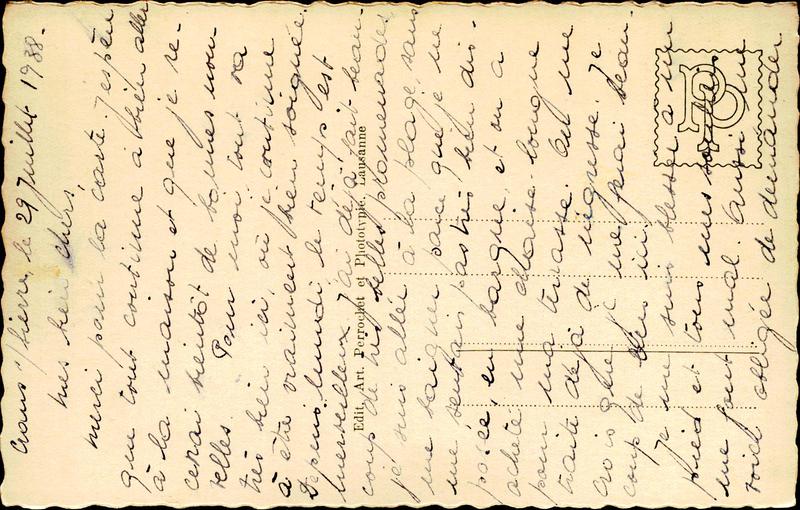 Crans s/Sierre, le 29 Juillet 1938.
Mes bien chers,
Merci pour la carte. J'espère
que tout continue à bien aller
à la maison et que je re-
cevrai bientôt de bonnes nou-
velles. Pour moi tout va
très bien ici, où je continue
à être vraiment bien soignée.
Depuis lundi le temps est
merveilleux. J'ai déjà fait beau-
coup de très belles promenades,
je suis allée à la plage, sans
me baigner parce que je ne
me sentais pas très bien dis-
posée, en barque, et on a
acheté une chaise-longue
pour ma terrasse. On me
traite déjà de négresse. Je
crois que je me plairai beau-
coup ici.
Je me suis blessée à un
pied et tous mes souliers
me font mal. Aussi
obligée de demander
Edit. Art. Perrochet et Phototypie, Lausanne